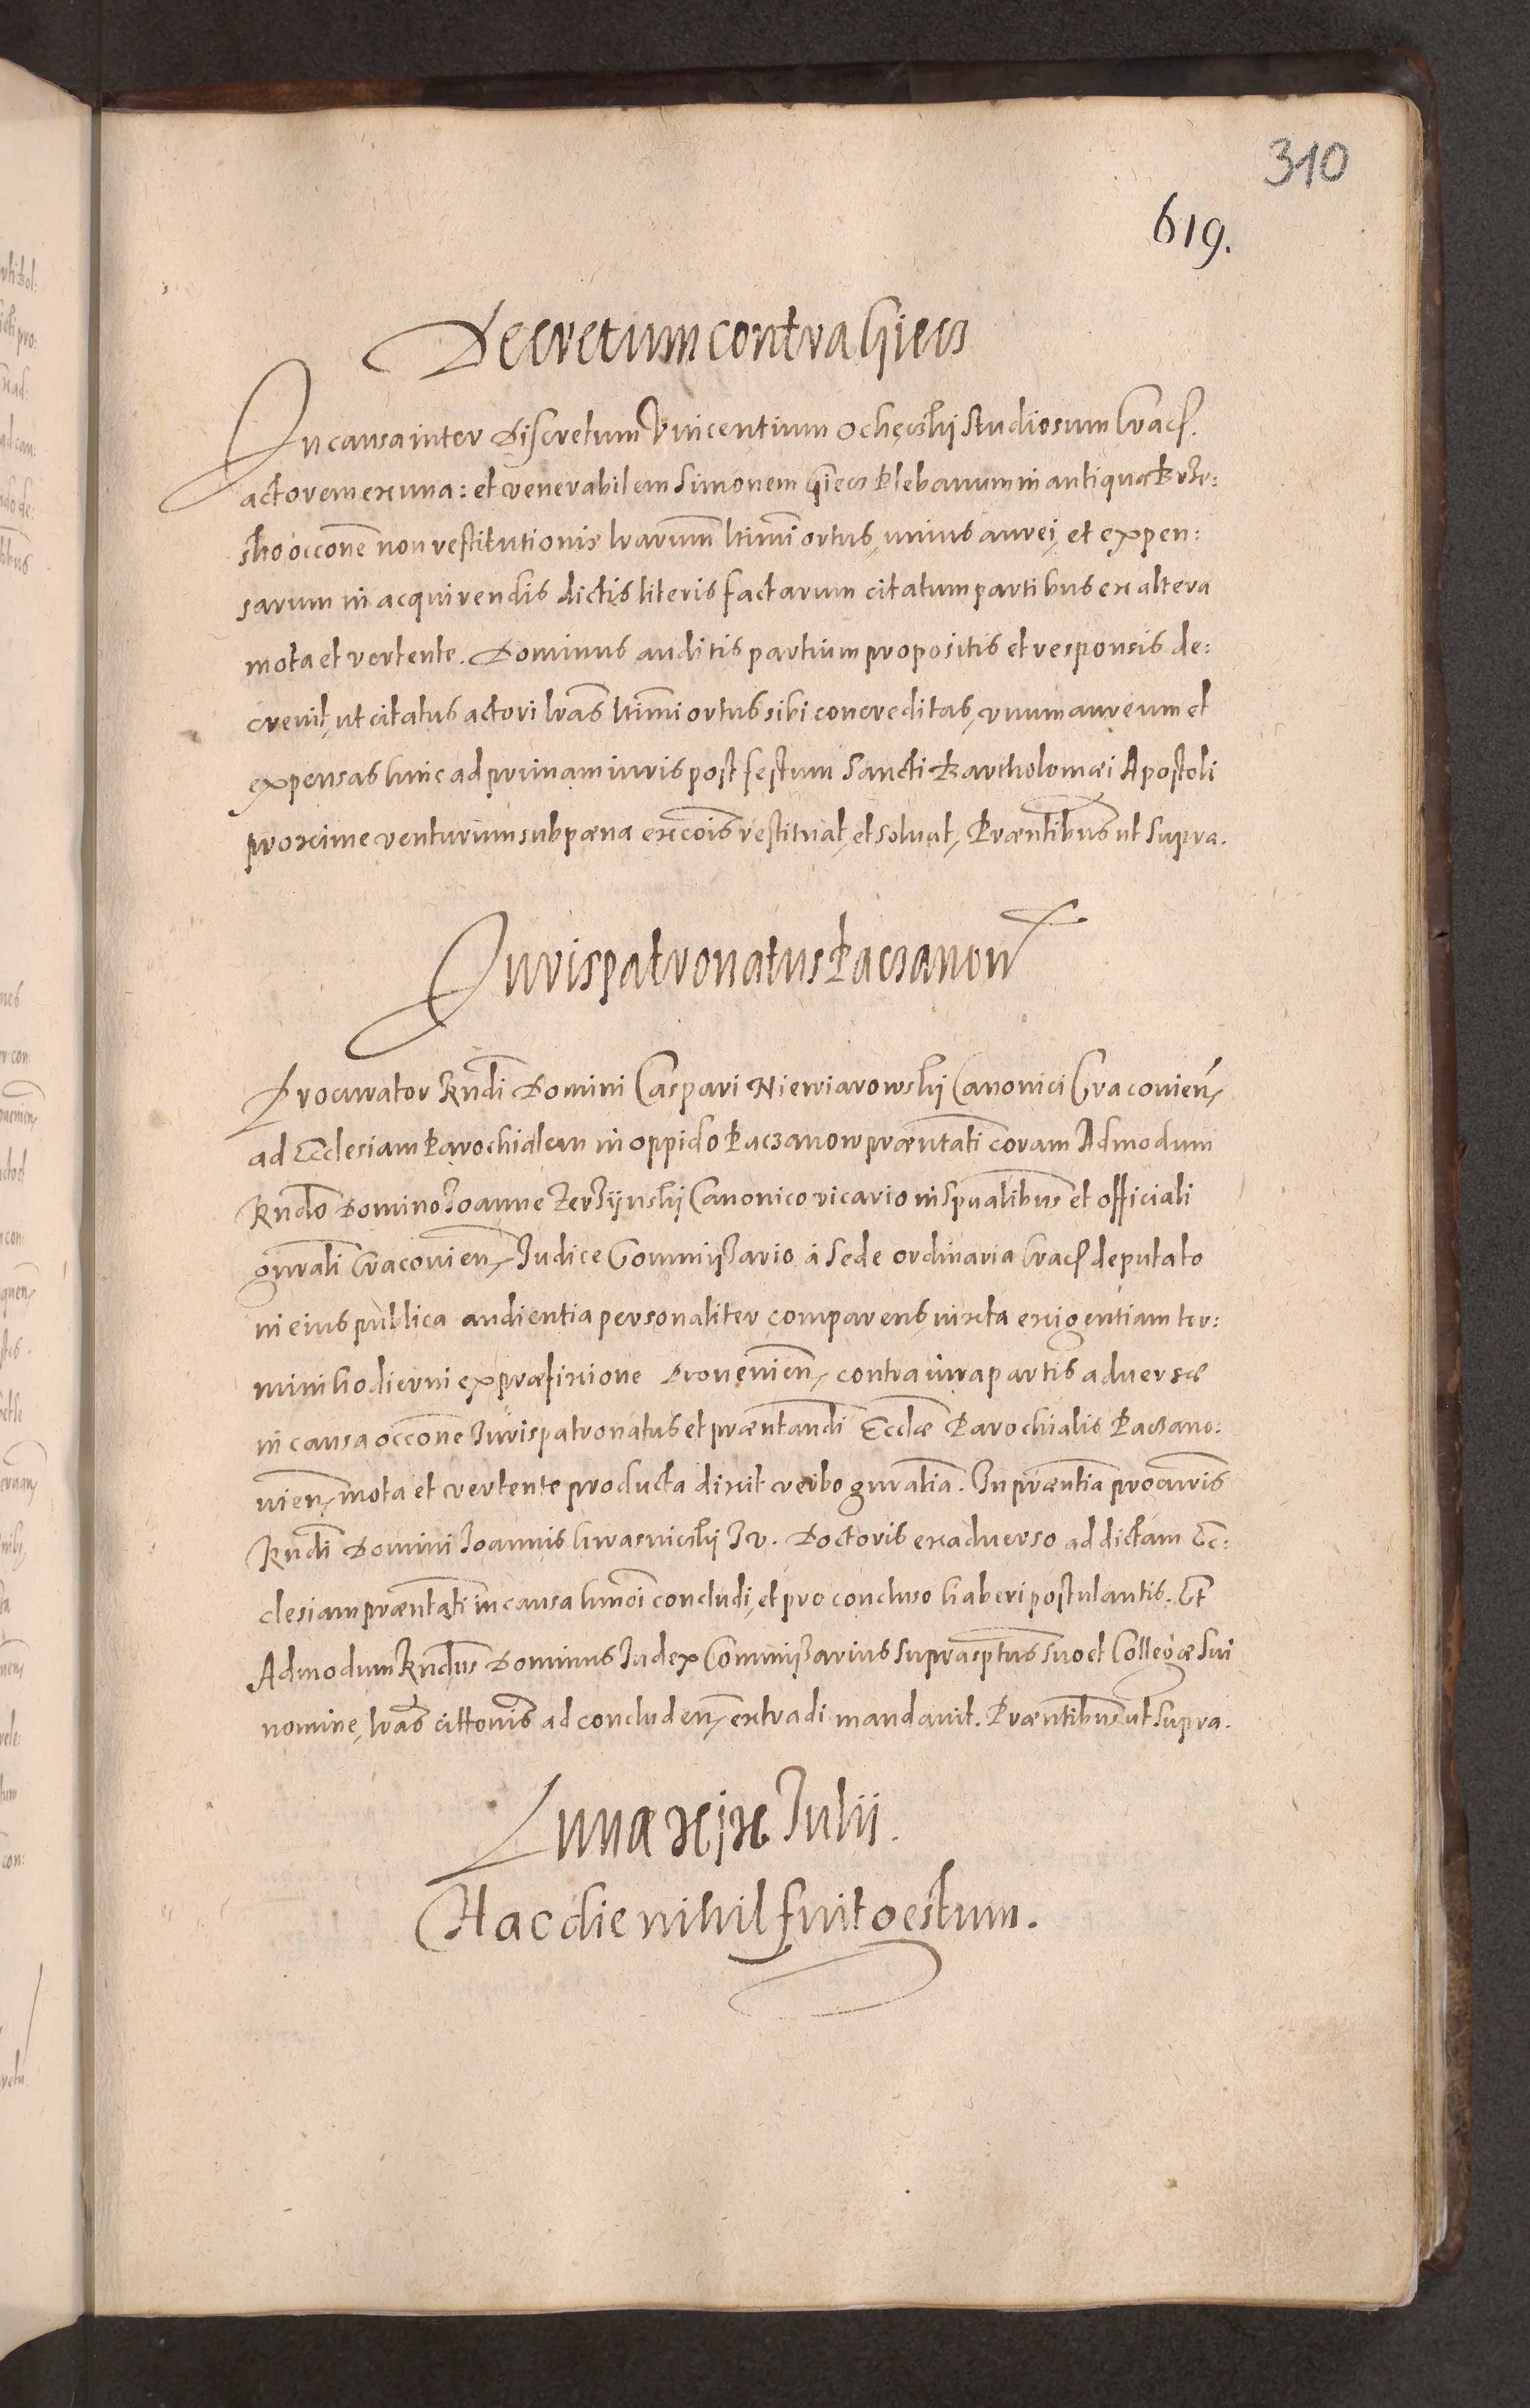 310
619.
Decretum contra Giecz
In causa inter Discretum Vincentium Ochęczkij studiosum Crac̃.
actorem ex una: et venerabilem Simonem Giecz Plebanum in antiqua Brze:
sko occone non restitutionis lrarum ltimi ortus, unius aurei, et expen:
sarum in acquirendis dictis literis factarum citatum partibus ex altera
mota et vertente. Dominus auditis partium propositis et responsis de:
crevit, ut citatus actori lras ltimi ortus sibi concreditas, vnum aureum et
expensas hinc ad primam iuris post festum Sancti Bartholomæi Apostoli
proxime venturum sub pæna excois restituat, et soluat, Præntibus ut supra.
Jurispatronatus Paczanow
Procurator Rndi Domini Caspari Niewiarowskij Canonici Cracovien,
ad Ecclesiam Parochialem in oppido Paczanow præntati coram Admodum
Rndo Domino Joanne Zerzijnskij Canonico vicario in Spualibus et officiali
gnrali Cracovien, Judice Commissario à Sede ordinaria Crac̃ deputato
in eius publica audientia personaliter comparens, iuxta exigentiam ter:
mini hodierni ex præfixione provenien, contra iura partis adversæ
in causa occone Jurispatronatus et præntandi Ecclæ Parochialis Paczano:
vien, mota et vertente producta dixit verbo gnralia. In præntia procuris
Rndi Domini Joannis Kwasniczkij J. V. Doctoris ex adverso ad dictam Ec:
clesiam præntati in causa hmoi concludi, et pro concluso haberi postulantis. Et
Admodum Rndus Dominus Judex Commissarius suprascptus suo et Collegæ sui
nomine, lras cittonis ad concluden, extradi mandavit. Præntibus ut supra.
Lunæ xix Julii.
Hac die nihil fuit gestum.